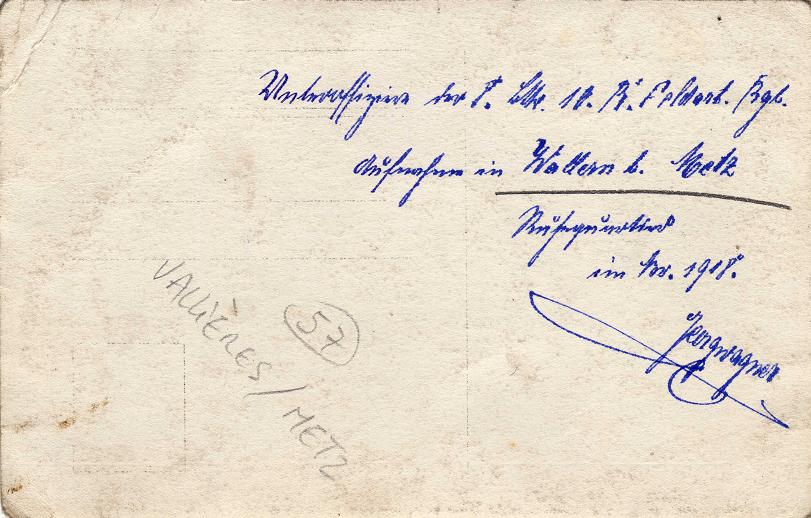 Unteroffiziere der 8. Bttr. 10. R. Feldart. Rgt.
Aufnahme in Wallern b. Metz
Ruhequartier
im 1918.
VALLIÈRES / METZ
57